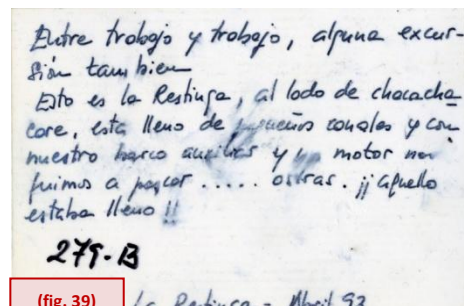 Entre trabajo y trabajo, alguna excur-
sión tambien
Esto es la Restinga, al lado de chacacha
care, esta lleno de pequeños canales y con
nuestro barco auxiliar y motor nos
fuimos a pescar ..... ostras. ¡¡ aquello
estaba lleno !!
279-B
(fig. 39)
La Restinga - Abril 93